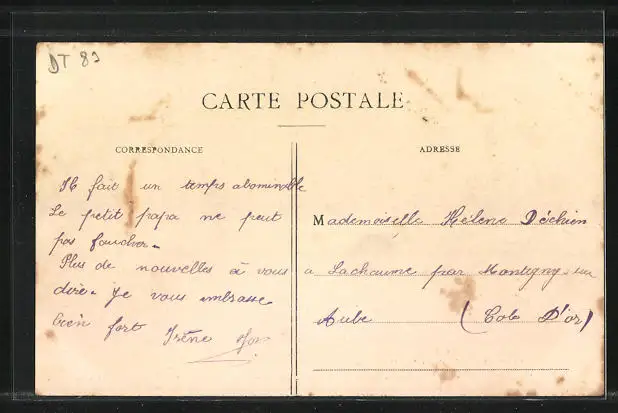 DT 83
CARTE POSTALE
CORRESPONDANCE
ADRESSE
Il fait un temps abominable
Le petit papa ne peut
pas faucher.
Plus de nouvelles à vous
dire. Je vous embrasse
bien fort Irène
Mademoiselle Hélène Déchien
a Lachaume par Montigny sur
Aube (Cote D'or)